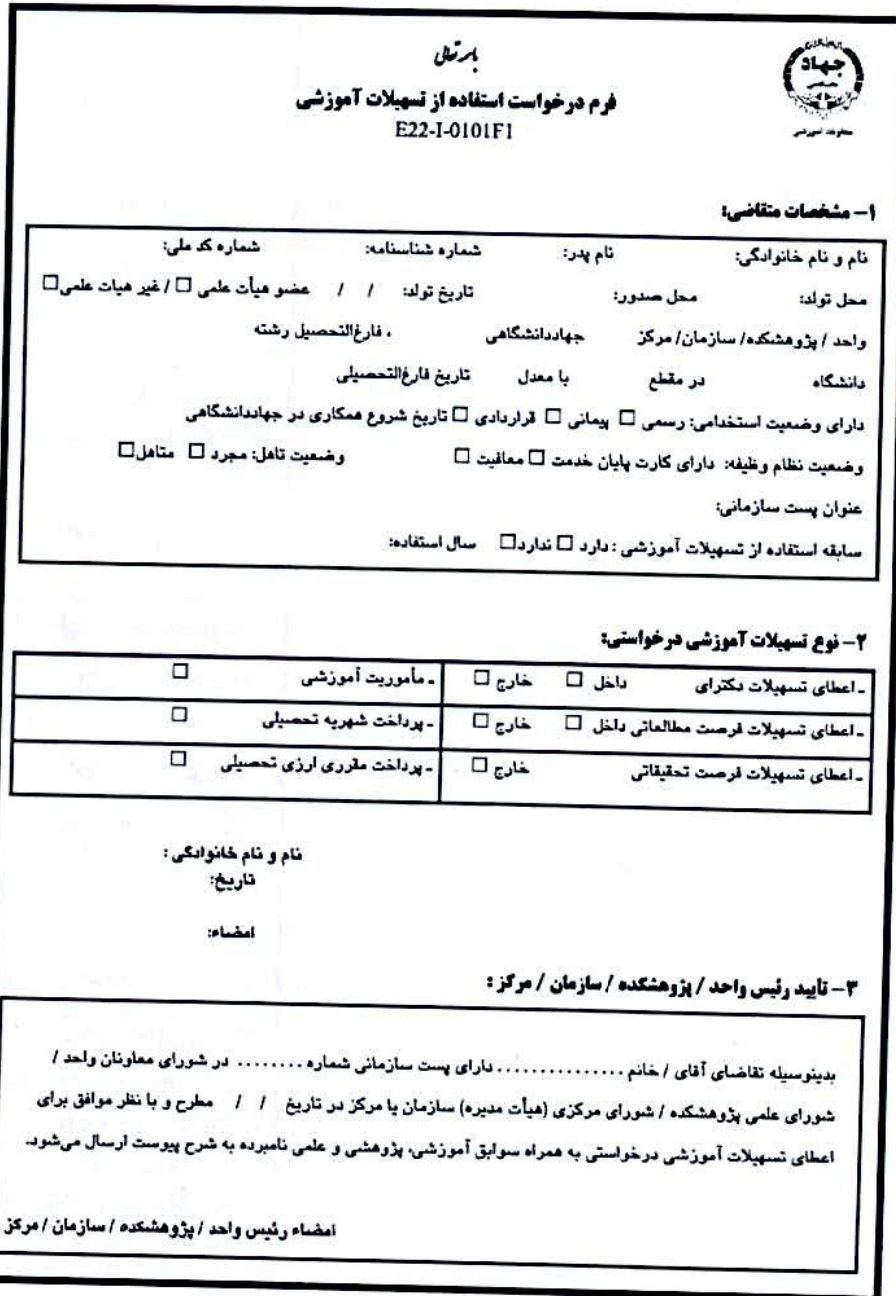 باسمه تعالی
فرم درخواست استفاده از تسهیلات آموزشی
E22-I-0101F1
جهاد
معاونت آموزشی
۱- مشخصات متقاضی:
نام و نام خانوادگی: نام پدر: شماره شناسنامه: شماره کد ملی:
محل تولد: محل صدور: تاریخ تولد: / / عضو هیأت علمی ☐ / غیر هیات علمی ☐
واحد / پژوهشکده/ سازمان/ مرکز جهاددانشگاهی ، فارغ‌التحصیل رشته
دانشگاه در مقطع با معدل تاریخ فارغ‌التحصیلی
دارای وضعیت استخدامی: رسمی ☐ پیمانی ☐ قراردادی ☐ تاریخ شروع همکاری در جهاددانشگاهی
وضعیت نظام وظیفه: دارای کارت پایان خدمت ☐ معافیت ☐ وضعیت تاهل: مجرد ☐ متاهل ☐
عنوان پست سازمانی:
سابقه استفاده از تسهیلات آموزشی : دارد ☐ ندارد ☐ سال استفاده:
۲- نوع تسهیلات آموزشی درخواستی:
- اعطای تسهیلات دکترای داخل ☐ خارج ☐ - مأموریت آموزشی ☐
- اعطای تسهیلات فرصت مطالعاتی داخل ☐ خارج ☐ - پرداخت شهریه تحصیلی ☐
- اعطای تسهیلات فرصت تحقیقاتی خارج ☐ - پرداخت مقرری ارزی تحصیلی ☐
نام و نام خانوادگی :
تاریخ:
امضاء:
۳- تأیید رئیس واحد / پژوهشکده / سازمان / مرکز :
بدینوسیله تقاضای آقای / خانم ............... دارای پست سازمانی شماره ........ در شورای معاونان واحد /
شورای علمی پژوهشکده / شورای مرکزی (هیأت مدیره) سازمان یا مرکز در تاریخ / / مطرح و با نظر موافق برای
اعطای تسهیلات آموزشی درخواستی به همراه سوابق آموزشی، پژوهشی و علمی نامبرده به شرح پیوست ارسال می‌شود.
امضاء رئیس واحد / پژوهشکده / سازمان / مرکز